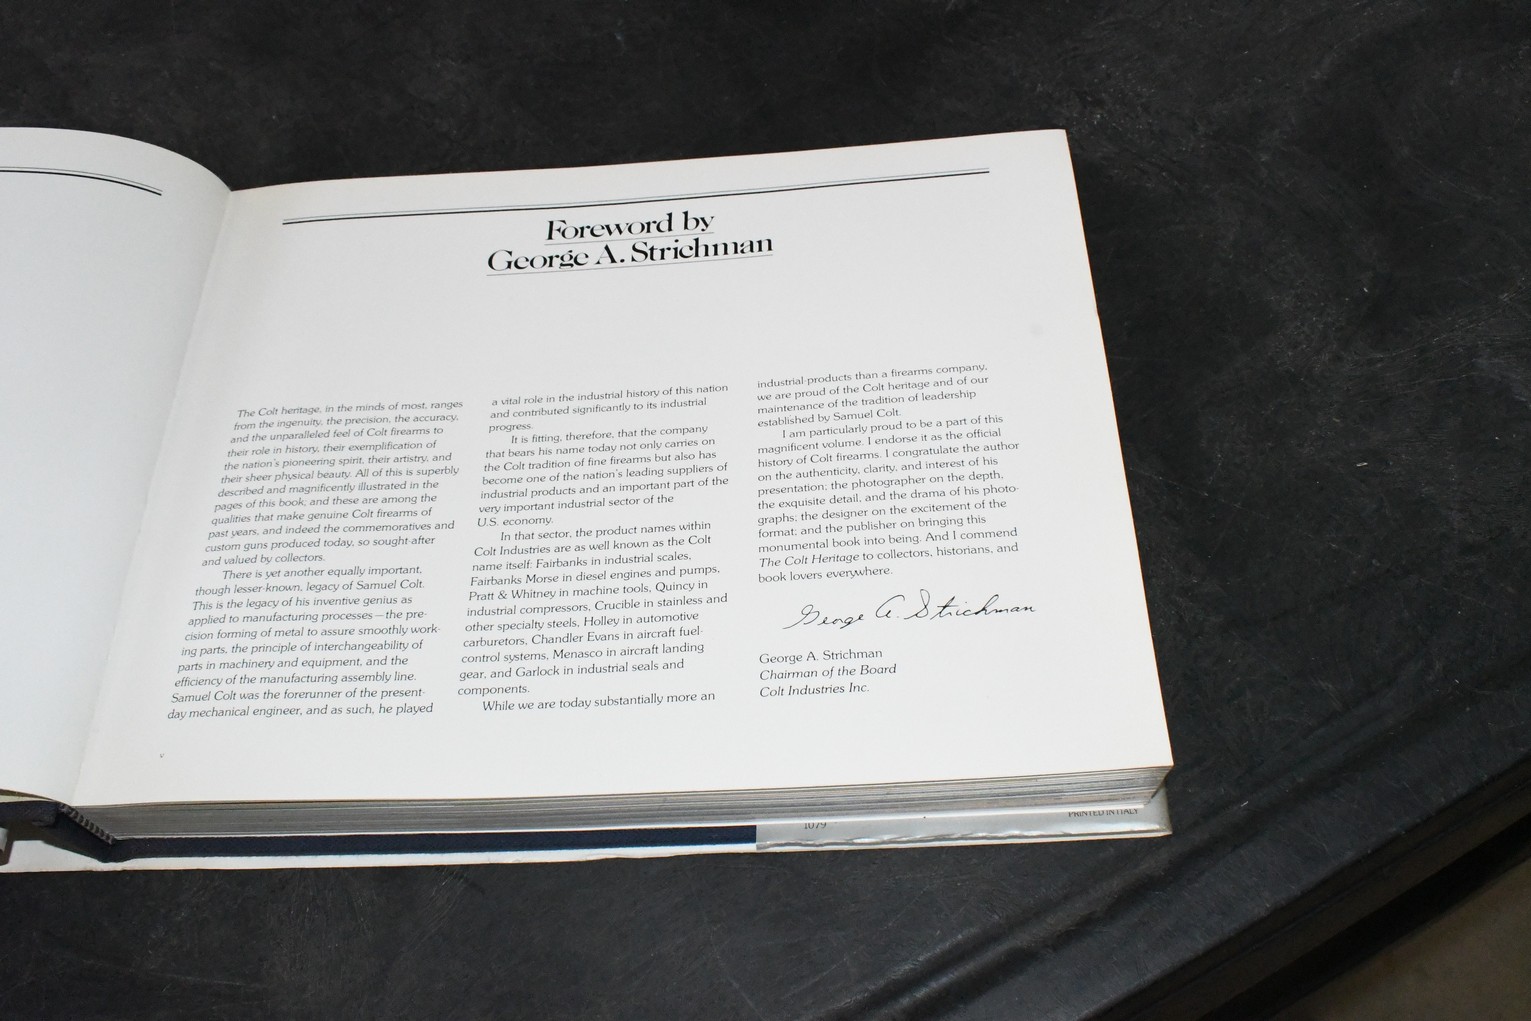 Foreword by
George A. Strichman
The Colt heritage, in the minds of most, ranges
from the ingenuity, the precision, the accuracy,
and the unparalleled feel of Colt firearms to
their role in history, their exemplification of
the nation's pioneering spirit, their artistry, and
their sheer physical beauty. All of this is superbly
described and magnificently illustrated in the
pages of this book; and these are among the
qualities that make genuine Colt firearms of
past years, and indeed the commemoratives and
custom guns produced today, so sought-after
and valued by collectors.
There is yet another equally important,
though lesser-known, legacy of Samuel Colt.
This is the legacy of his inventive genius as
applied to manufacturing processes—the pre-
cision forming of metal to assure smoothly work-
ing parts, the principle of interchangeability of
parts in machinery and equipment, and the
efficiency of the manufacturing assembly line.
Samuel Colt was the forerunner of the present-
day mechanical engineer, and as such, he played
a vital role in the industrial history of this nation
and contributed significantly to its industrial
progress.
It is fitting, therefore, that the company
that bears his name today not only carries on
the Colt tradition of fine firearms but also has
become one of the nation's leading suppliers of
industrial products and an important part of the
very important industrial sector of the
U.S. economy.
In that sector, the product names within
Colt Industries are as well known as the Colt
name itself: Fairbanks in industrial scales,
Fairbanks Morse in diesel engines and pumps,
Pratt & Whitney in machine tools, Quincy in
industrial compressors, Crucible in stainless and
other specialty steels, Holley in automotive
carburetors, Chandler Evans in aircraft fuel-
control systems, Menasco in aircraft landing
gear, and Garlock in industrial seals and
components.
While we are today substantially more an
industrial-products than a firearms company,
we are proud of the Colt heritage and of our
maintenance of the tradition of leadership
established by Samuel Colt.
I am particularly proud to be a part of this
magnificent volume. I endorse it as the official
history of Colt firearms. I congratulate the author
on the authenticity, clarity, and interest of his
presentation; the photographer on the depth,
the exquisite detail, and the drama of his photo-
graphs; the designer on the excitement of the
format; and the publisher on bringing this
monumental book into being. And I commend
The Colt Heritage to collectors, historians, and
book lovers everywhere.
George A. Strichman
George A. Strichman
Chairman of the Board
Colt Industries Inc.
v
1079
PRINTED IN ITALY